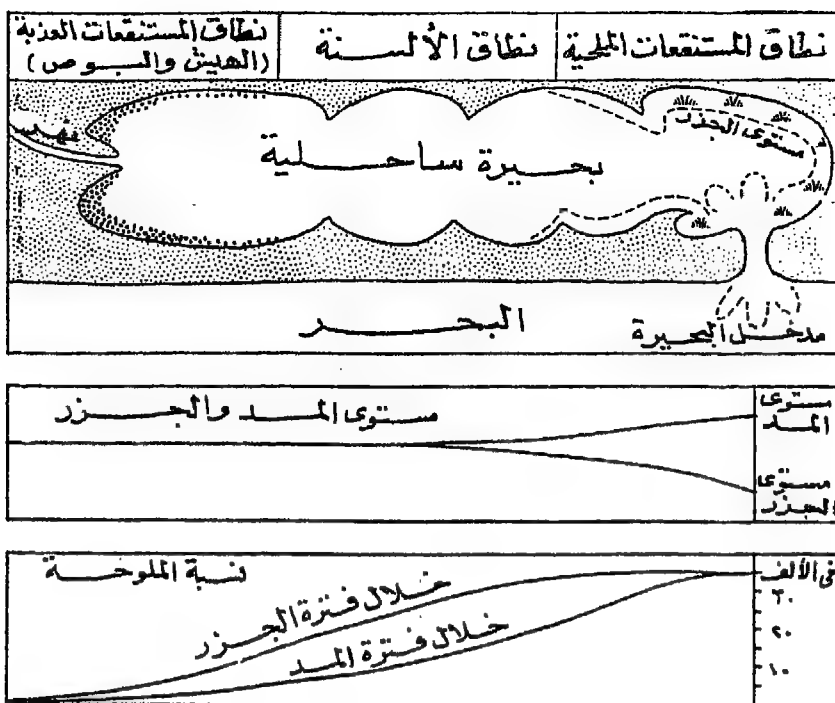 نطاق المستنقعات الملحية
نطاق الألسنة
نطاق المستنقعات العذبة
(الهيش والبوص)
مستوى الجذر
نهر
بحيرة ساحلية
البحر
مدخل البحيرة
مستوى المد والجزر
مستوى
المد
مستوى
الجزر
نسبة الملوحة
خلال فترة الجزر
خلال فترة المد
في الألف
٣٠
٢٠
١٠